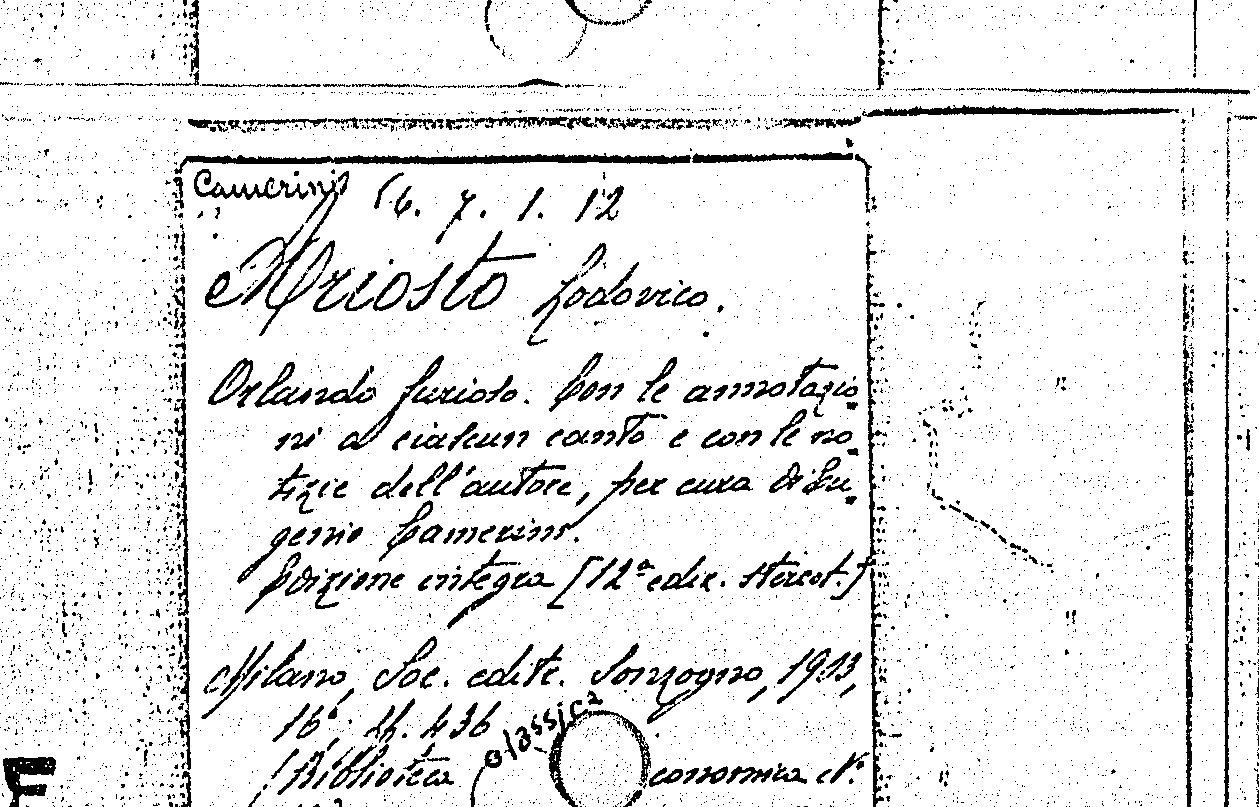 Camerini
56. 7. 1. 12
Ariosto Lodovico.
Orlando furioso. Con le annotazio
ni a ciascun canto e con le no
tizie dell'autore, per cura di Eu
genio Camerini.
Edizione integra [12ª ediz. stereot.]
Milano, Soc. editr. Sonzogno, 1913,
16°, 436
classica
(Biblioteca economica N.
E